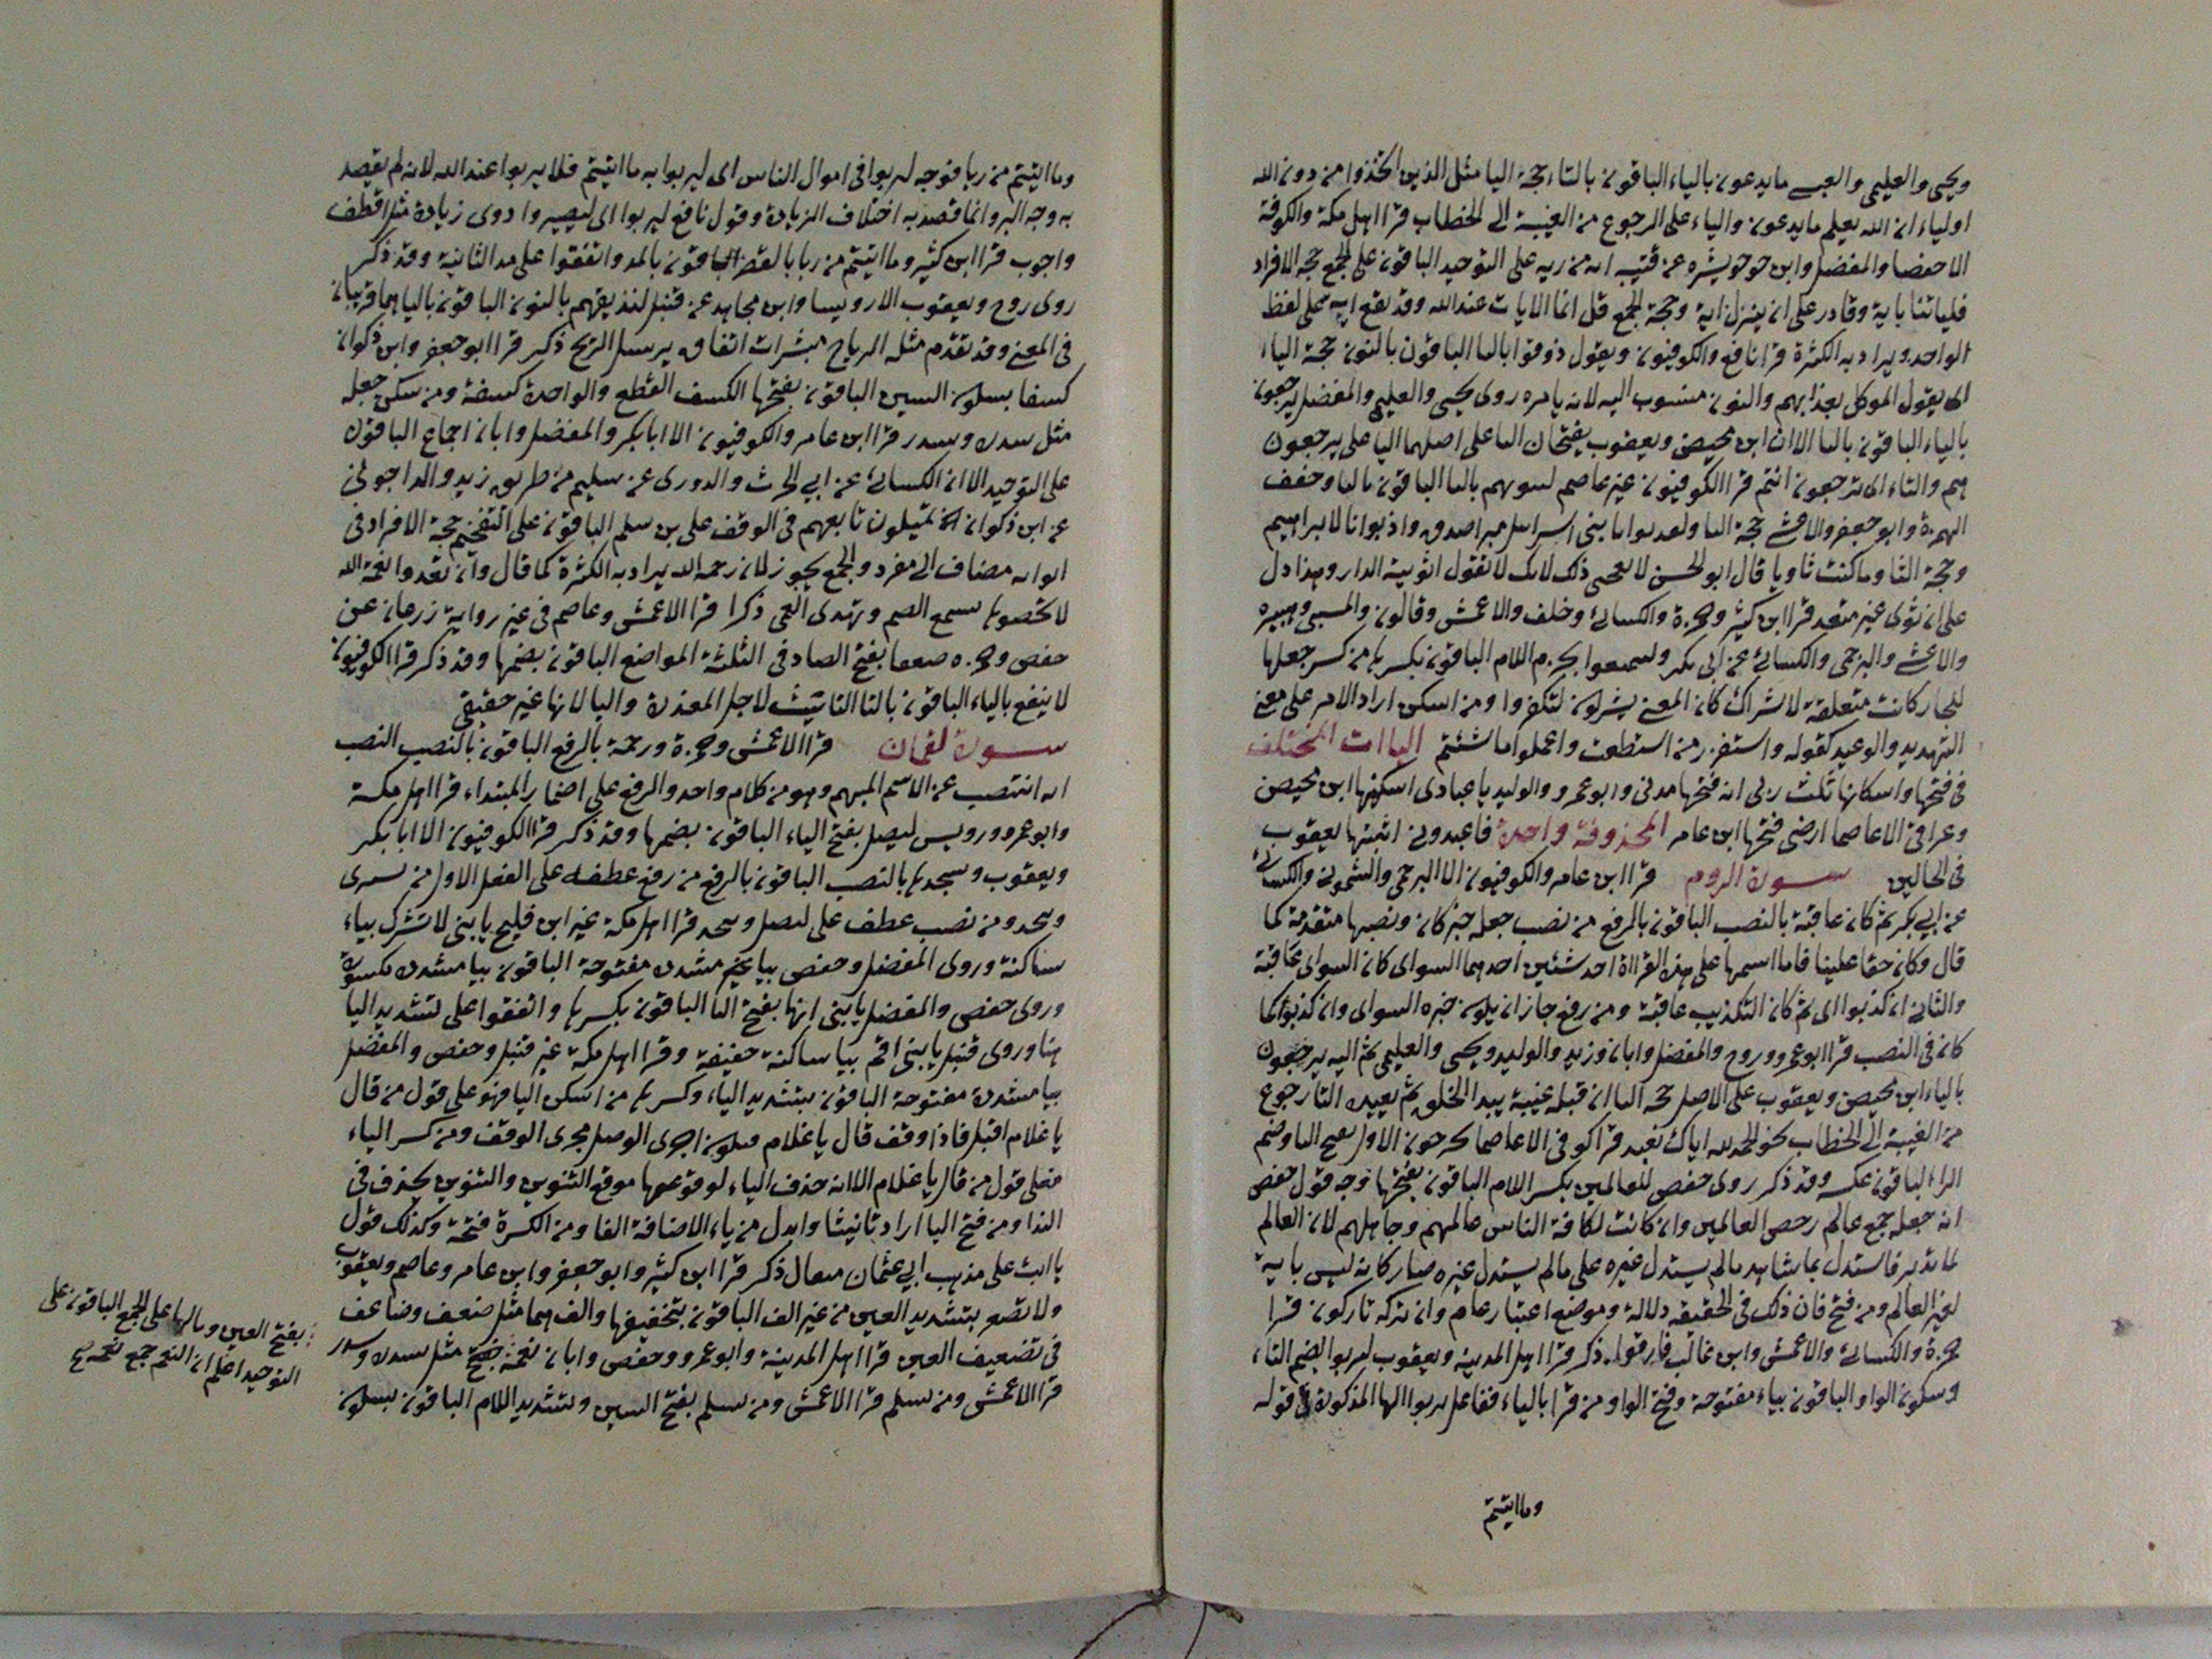 ويحيى والعليمى والعبسى ما يدعون بالياء الباقون بالتاء حجة اليا مثل الذين اتخذوا من دون الله
اولياء ان الله يعلم ما يدعون والياء على الرجوع من الغيبة الى الخطاب قرا اهل مكة والكوفة
الا حفصا والمفضل وابن عن قتيبة اية من ربه على التوحيد الباقون على الجمع حجة الافراد
فلياتنا باية وقادر على ان ينزل اية وحجة الجمع قل انما الايات عند الله وقد تقع اية على لفظ
الواحد ويراد به الكثرة قرا نافع والكوفيون ويقول ذوقوا باليا الباقون بالنون حجة الياء
اى يقول الموكل بعذابهم والنون منسوب اليه لانه يامره روى يحيى والعليمى والمفضل يرجعون
بالياء الباقون بالتا الا ان ابن محيصن ويعقوب يفتحان التا على اصلهما اليا على يرجعون
هم والتاء اى ترجعون انتم قرا الكوفيون غير عاصم لنبوينهم بالثا الباقون بالبا وخفف
الهمزة وابو جعفر والاعشى حجة البا ولقد بوانا بنى اسرايل مبوا صدق واذ بوانا لابراهيم
وحجة الثا وما كنت ثاويا قال ابو الحسن لا يعجبنى ذلك لانك لا تقول اثويته الدار وهذا دل
على ان ثوى غير متعد قرا ابن كثير وحمزة والكسائى وخلف والاعمش وقالون والمسيبى وهبيرة
والاعشى والبرجمى والكسائى عن ابى بكر وليتمتعوا بجزم اللام الباقون بكسرها من كسر جعلها
للجار كانت متعلقة لاشراك كان المعنى يشركون لتكفروا ومن اسكن اراد الامر على معنى
التهديد والوعيد كقوله واستفزز من استطعت واعملوا ما شئتم الياات المختلف
فى فتحها واسكانها ثلث ربى انه فتحها مدنى وابو عمرو والوليد يا عبادى اسكنها ابن محيصن
وعراقى الا عاصما ارضى فتحها ابن عامر المحذوفة واحدة فاعبدونى اثبتها يعقوب
فى الحالين سورة الروم قرا ابن عامر والكوفيون الا البرجمى والشمونى والكسائى
عن ابى بكر ثم كان عاقبة بالنصب الباقون بالرفع من نصب جعله خبر كان ونصبها متقدمة كما
قال وكان حقا علينا فاما اسمها على هذه القراة احد شئين احدهما السواى كان السواى عاقبة
والثانى ان كذبوا اى ثم كان التكذيب عاقبة ومن رفع جاز ان يكون خبره السواى وان كذبوا كما
كان فى النصب قرا ابو عمرو وروح والمفضل وابان وزيد والوليد ويحيى والعليمى ثم اليه يرجعون
بالياء ابن محيصن ويعقوب على الاصل حجة اليا ان قبله غيبة يبدا الخلق ثم يعيده التا رجوع
من الغيبة الى الخطاب نحو الحمد لله اياك نعبد قرا كوفى الا عاصما تخرجون الاول بفتح التا وضم
الراء الباقون عكسه وقد ذكر روى حفص للعالمين بكسر اللام الباقون بفتحها وجه قول حفص
انه جعله جمع عالم وخص العالمين وان كانت لكافة الناس عالمهم وجاهلهم لان العالم
لما تدبر فاستدل بما شاهد ما لم يستدل غيره على ما لم يستدل غيره صار كانه ليس باية
لغير العالم ومن فتح فان ذلك فى الحقيقة دلالة وموضع اعتبار عام وان تركه تاركون قرا
حمزة والكسائى والاعمش وابن غالب فارقوا ذكر قرا اهل المدينة ويعقوب لتربوا بضم التاء
وسكون الواو الباقون بياء مفتوحة وفتح الواو من قرا بالياء ففاعل يربوا الها المذكورة فى قوله
وما اتيتم
وما اتيتم من ربا فوجه لتربوا فى اموال الناس اى ليربوا به ما اتيتم فلا يربوا عند الله لانه لم يقصد
به وجه البر وانما قصد به اختلاف الزيادة وقول نافع لتربوا اى لتصير وا ذوى زيادة مثل اقطف
واجرب قرا ابن كثير وما اتيتم من ربا بالقصر الباقون بالمد واتفقوا على مد الثانية وقد ذكر
روى روح ويعقوب الا رويسا وابن مجاهد عن قنبل لنذيقهم بالنون الباقون باليا هما قريبان
فى المعنى وقد تقدم مثله الرياح مبشرات اتفاق يرسل الريح ذكر قرا ابو جعفر وابن ذكوان
كسفا بسكون السين الباقون بفتحها الكسف القطع والواحدة كسفة ومن سكن جعله
مثل سدرة وسدر قرا ابن عامر والكوفيون الا ابا بكر والمفضل وابان اجماع الباقون
على التوحيد الا ان الكسائى عن ابى الحرث والدورى عن سليم من طريق زيد والداجونى
عن ابن ذكوان يميلون تابعهم فى الوقف على بن سلم الباقون على التفخيم حجة الافراد فى
انه مضاف الى مفرد والجمع يجوز لان رحمة الله يراد به الكثرة كما قال وان تعدوا نعمة الله
لا تحصوها يسمع الصم وتهدى العمى ذكرا قرا الاعمش وعاصم فى غير رواية زرعان عن
حفص وحمزة ضعفا بفتح الضاد فى الثلثة المواضع الباقون بضمها وقد ذكر قرا الكوفيون
لا ينفع بالياء الباقون بالتا التانيث لاجل المعذرة واليا لانها غير حقيقى
سورة لقمان قرا الاعمش وحمزة ورحمة بالرفع الباقون بالنصب النصب
انه انتصب عن الاسم المبهم وهو من كلام واحد والرفع على اضمار المبتداء قرا اهل مكة
وابو عمرو ورويس ليضل بفتح الياء الباقون بضمها وقد ذكر قرا الكوفيون الا ابا بكر
ويعقوب ويتخذها بالنصب الباقون بالرفع من رفع عطفه على الفعل الاول من يشترى
ويتخذ ومن نصب عطف على ليضل ويتخذ قرا اهل مكة غير ابن فليح يا بنى لا تشرك بياء
ساكنة وروى المفضل وحفص بيا غير مشددة مفتوحة الباقون بيا مشددة مكسورة
وروى حفص والمفضل يا بنى انها بفتح اليا الباقون بكسرها واتفقوا على تشديد اليا
هنا وروى قنبل يا بنى اقم بيا ساكنة خفيفة وقرا اهل مكة غير قنبل وحفص والمفضل
بيا مشددة مفتوحة الباقون بتشديد الياء وكسرها من اسكن اليا فهو على قول من قال
يا غلام اقبل فاذا وقف قال يا غلام فيكون اجرى الوصل مجرى الوقف ومن كسر الياء
فعلى قول من قال يا غلام الا انه حذف الياء لوقوعها موقع التنوين والتنوين يحذف فى
الندا ومن فتح اليا اراد ثانيتا وابدل من ياء الاضافة الفا ومن الكسرة فتحة وكذلك قول
يا ابت على مذهب ابى عثمان مثقال ذكر قرا ابن كثير وابو جعفر وابن عامر وعاصم ويعقوب
ولا تصعر بتشديد العين من غير الف الباقون بتخفيفها والف هما مثل ضعف وضاعف
فى تضعيف العين قرا اهل المدينة وابو عمرو وحفص وابان نعمة مثل سدرة وسدر
قرا الاعمش ومن يسلم قرا الاعمش ومن يسلم بفتح السين وتشديد اللام الباقون بسكون
بفتح العين وبالها على الجمع الباقون على
التوحيد اعلم ان النعم جمع نعمة صح